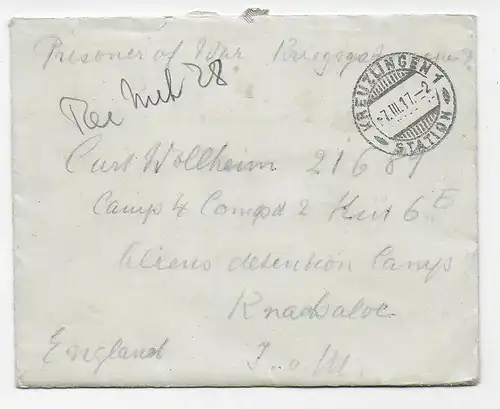 Prisoner of War
KREUZLINGEN 1
7.III.17.-2
STATION
28
Curt Wollheim 21689
Camp 4 Compd 2 Hut 6 E
Aliens detention Camp
Knockaloe
England I.o.M.